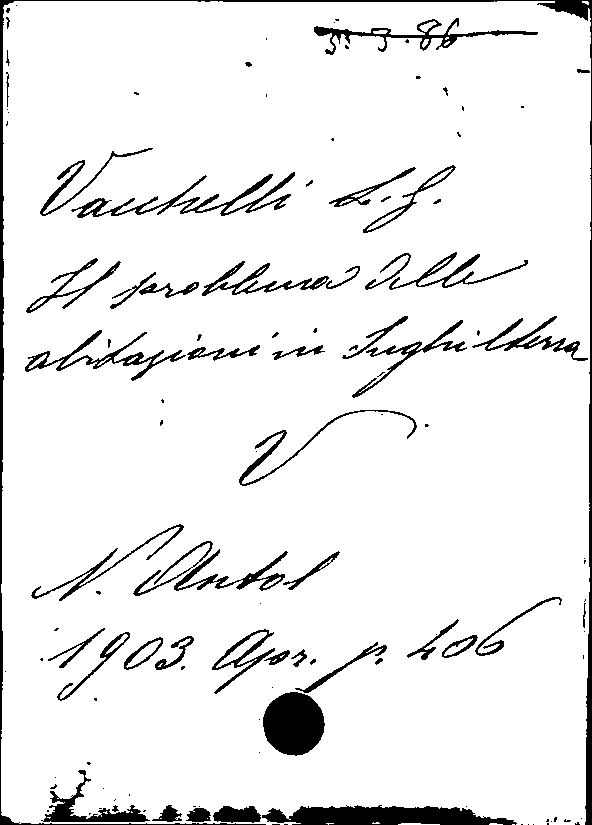 Vacchelli L. G.
Il problema delle
abitazioni in Inghilterra
V
N. Antol
1903. Apr. p. 406